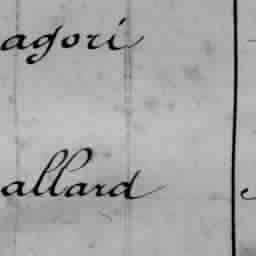 agori
allard